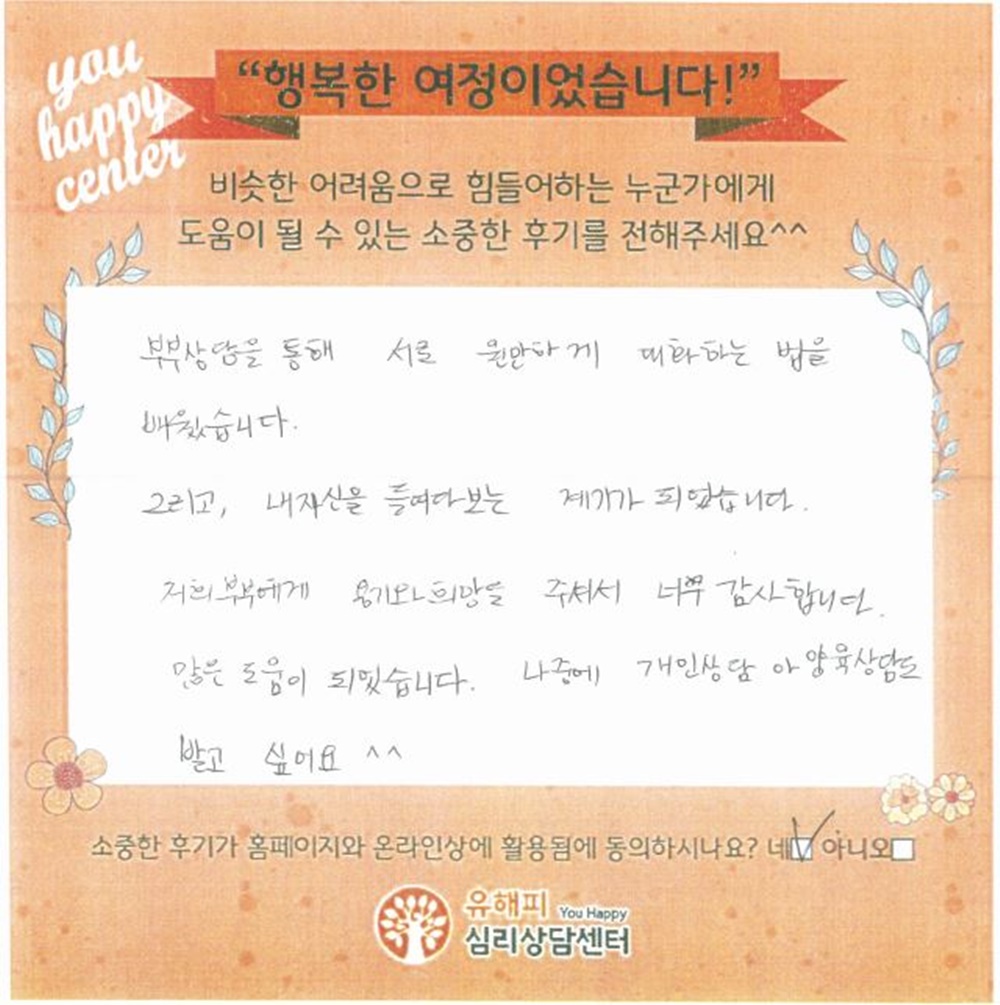 you
happy
center
“행복한 여정이었습니다!”
비슷한 어려움으로 힘들어하는 누군가에게
도움이 될 수 있는 소중한 후기를 전해주세요^^
부부상담을 통해 서로 원만하게 대화하는 법을
배웠습니다.
그리고, 내자신을 들여다보는 계기가 되었습니다.
저희부부에게 용기와 희망을 주셔서 너무 감사합니다.
많은 도움이 되었습니다. 나중에 개인상담 아양육상담도
받고 싶어요 ^^
소중한 후기가 홈페이지와 온라인상에 활용됨에 동의하시나요? 네 아니오
유해피 You Happy
심리상담센터